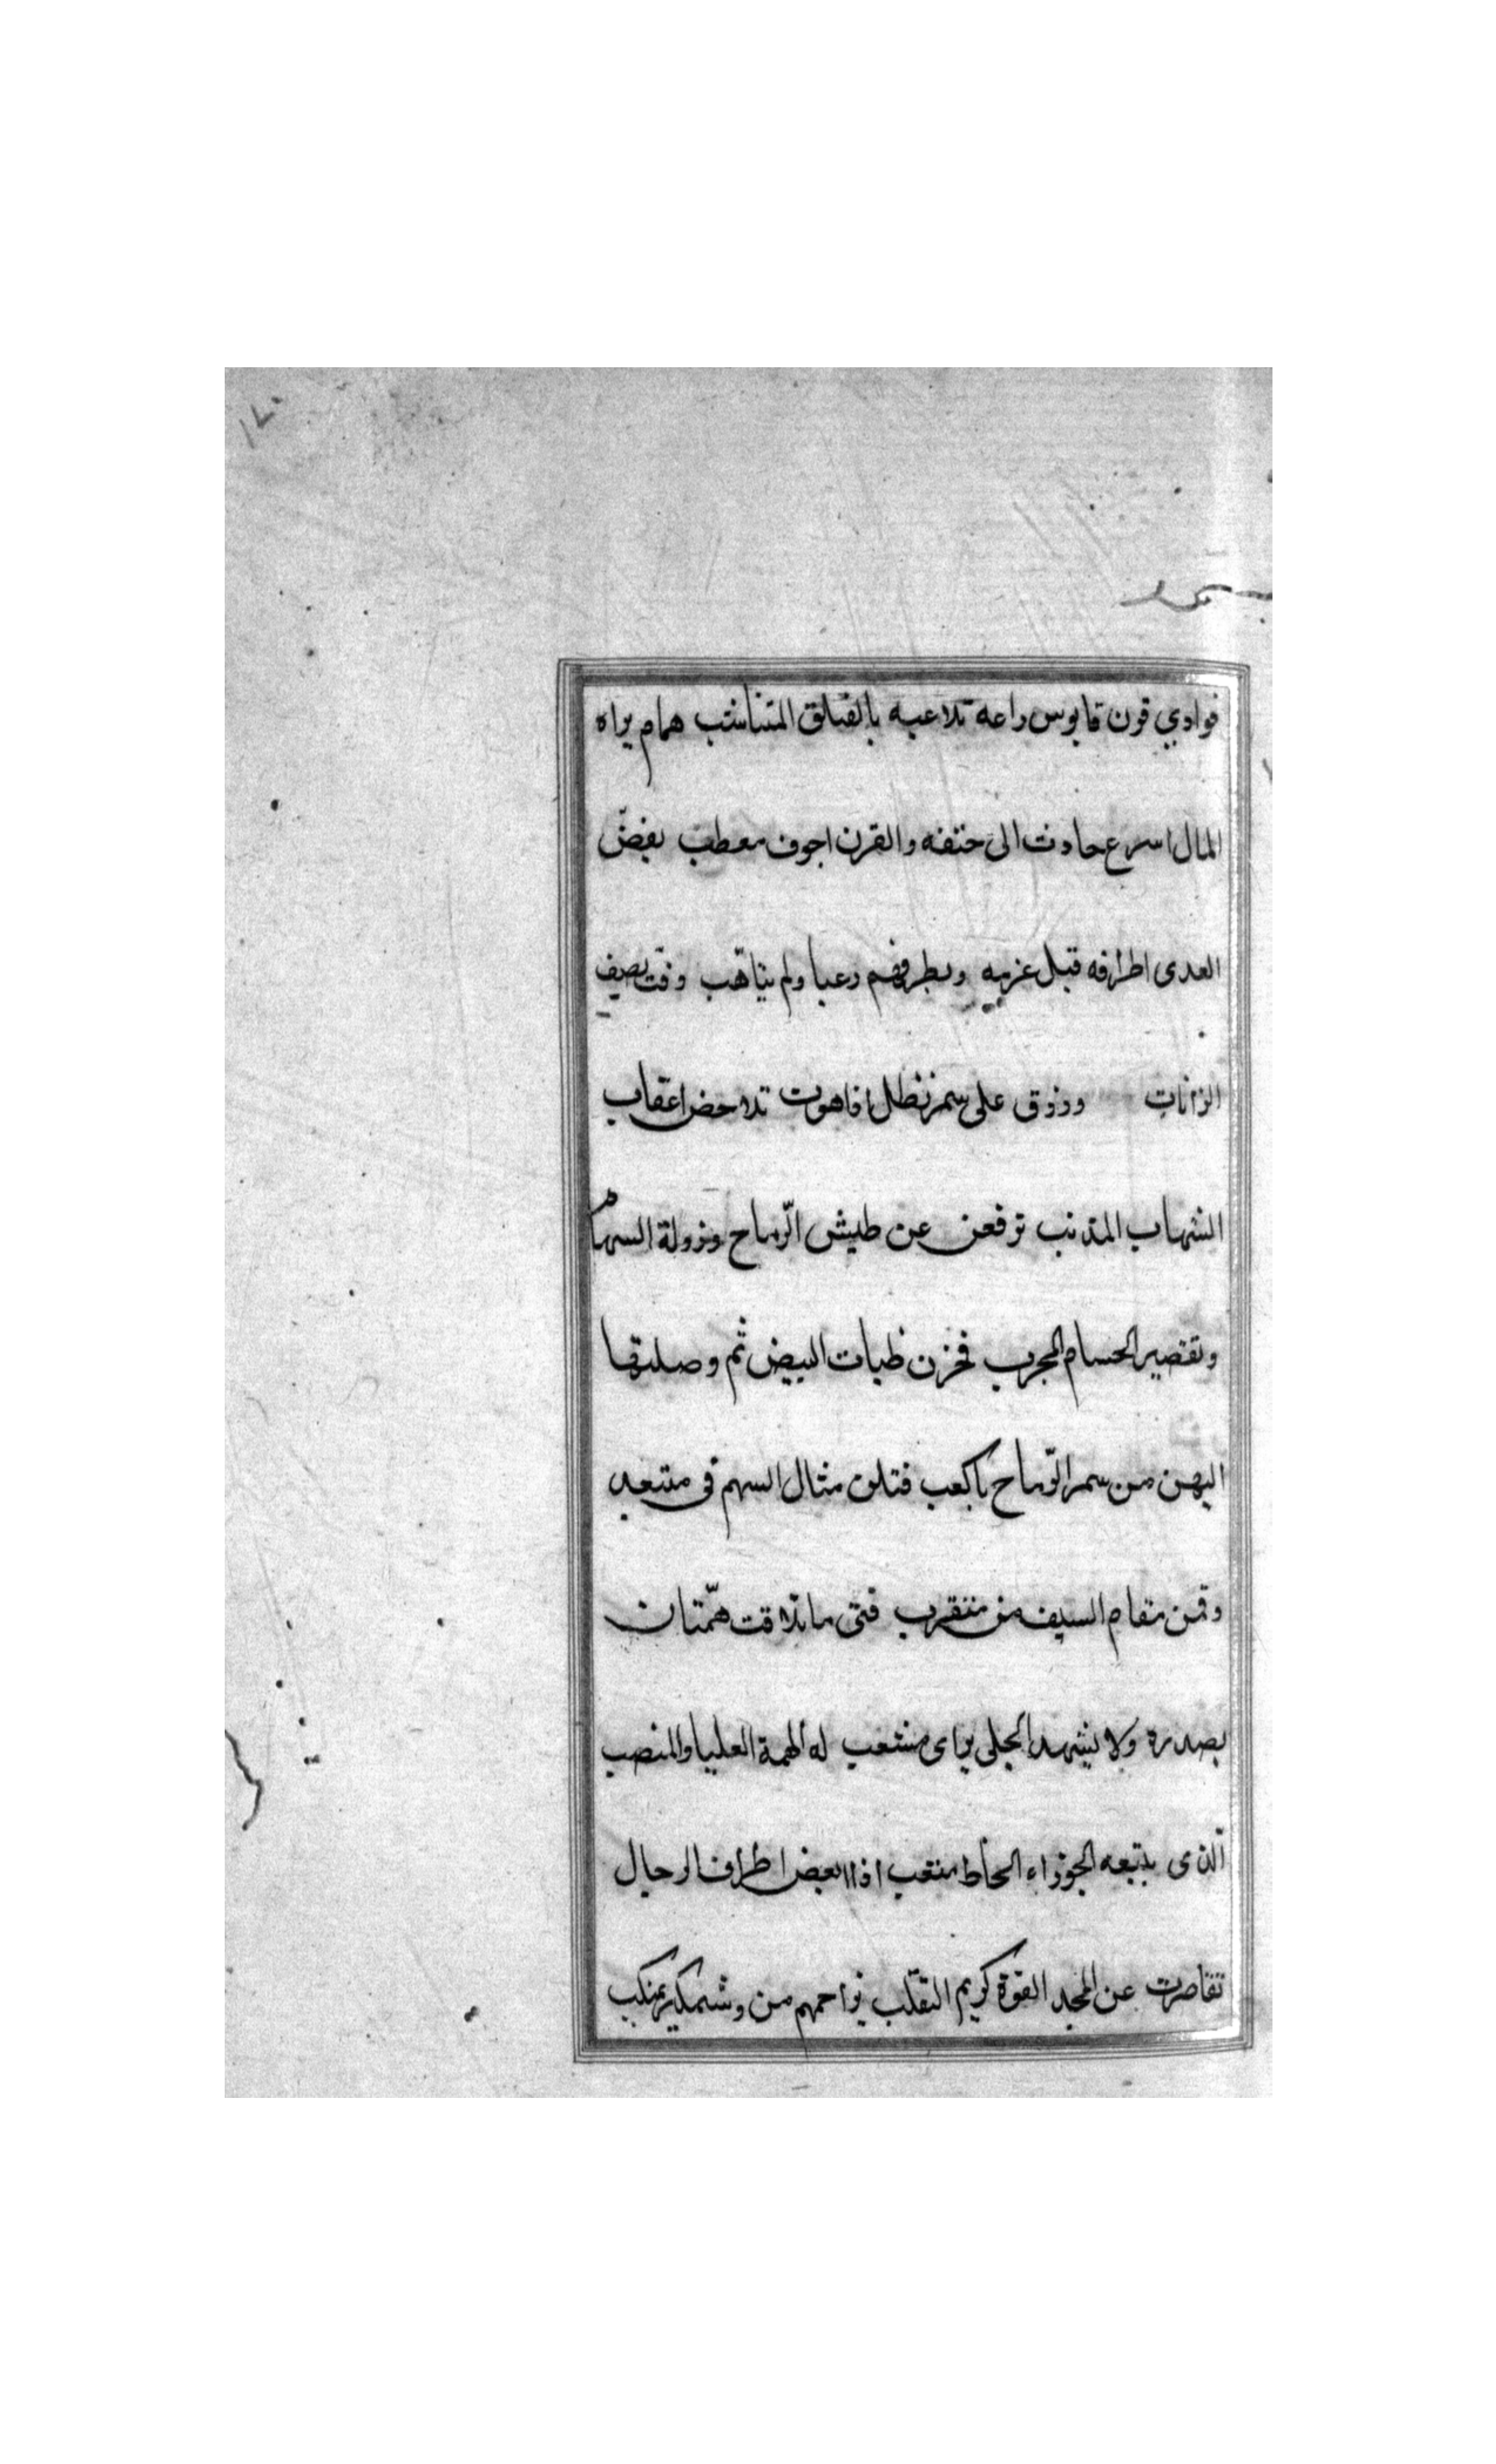 فوادي قرن قابوس راعه تلاعبه بالفيلق المتناشب همام يراه
المال اسرع حادث الى حتفه والقرن اجوف معطب يفضّ
العدى اطرافه قبل عزمه ويطرفهم رعبا ولم يتاهّب وقت يصيف
الزانات وزوق على سمر نظل افاهوت تلاحض اعقاب
الشهاب المذنب ترفعن عن طيش الرّماح وزولة السهام
وتقصير الحسام المجرب فحزن ظبات البيض ثم وصلتها
اليهن من سمر الرّماح باكعب فتلن مثال السهم في متبعد
وقمن مقام السيف من متقرب فتى ما تلاقت همّتان
بصدره ولا يشهد الجلى براى منشعب له الهمة العليا والمنصب
الّذى يتبعه الجوزاء الحاظ متعب اذا بعض اطراف الرجال
تقاصرت عن المجد القوة كريم التقلّب نواحمهم من وشمكير بمنكب